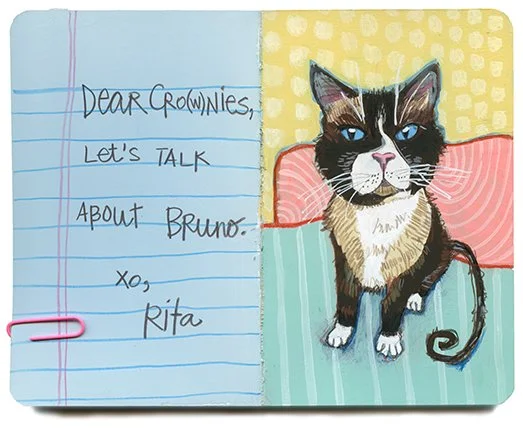 DEAR CRO(W)NIES,
LET'S TALK
ABOUT BRUNO.
XO,
Rita